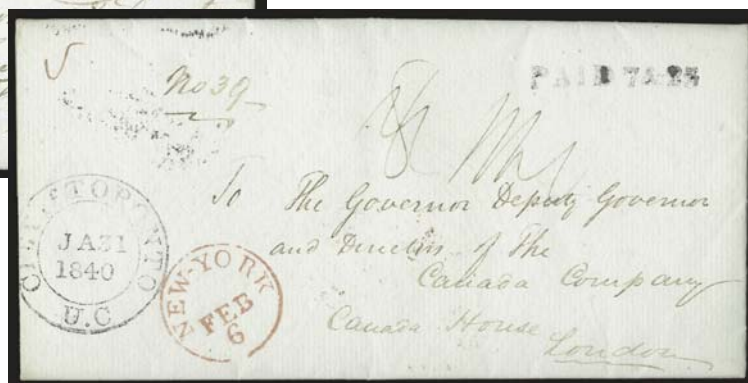 No 39
PAID 7&25
To The Governor Deputy Governor
and Directors of The
Canada Company
Canada House
London
CITY OF TORONTO
U.C
JA31
1840
NEW-YORK
FEB
6